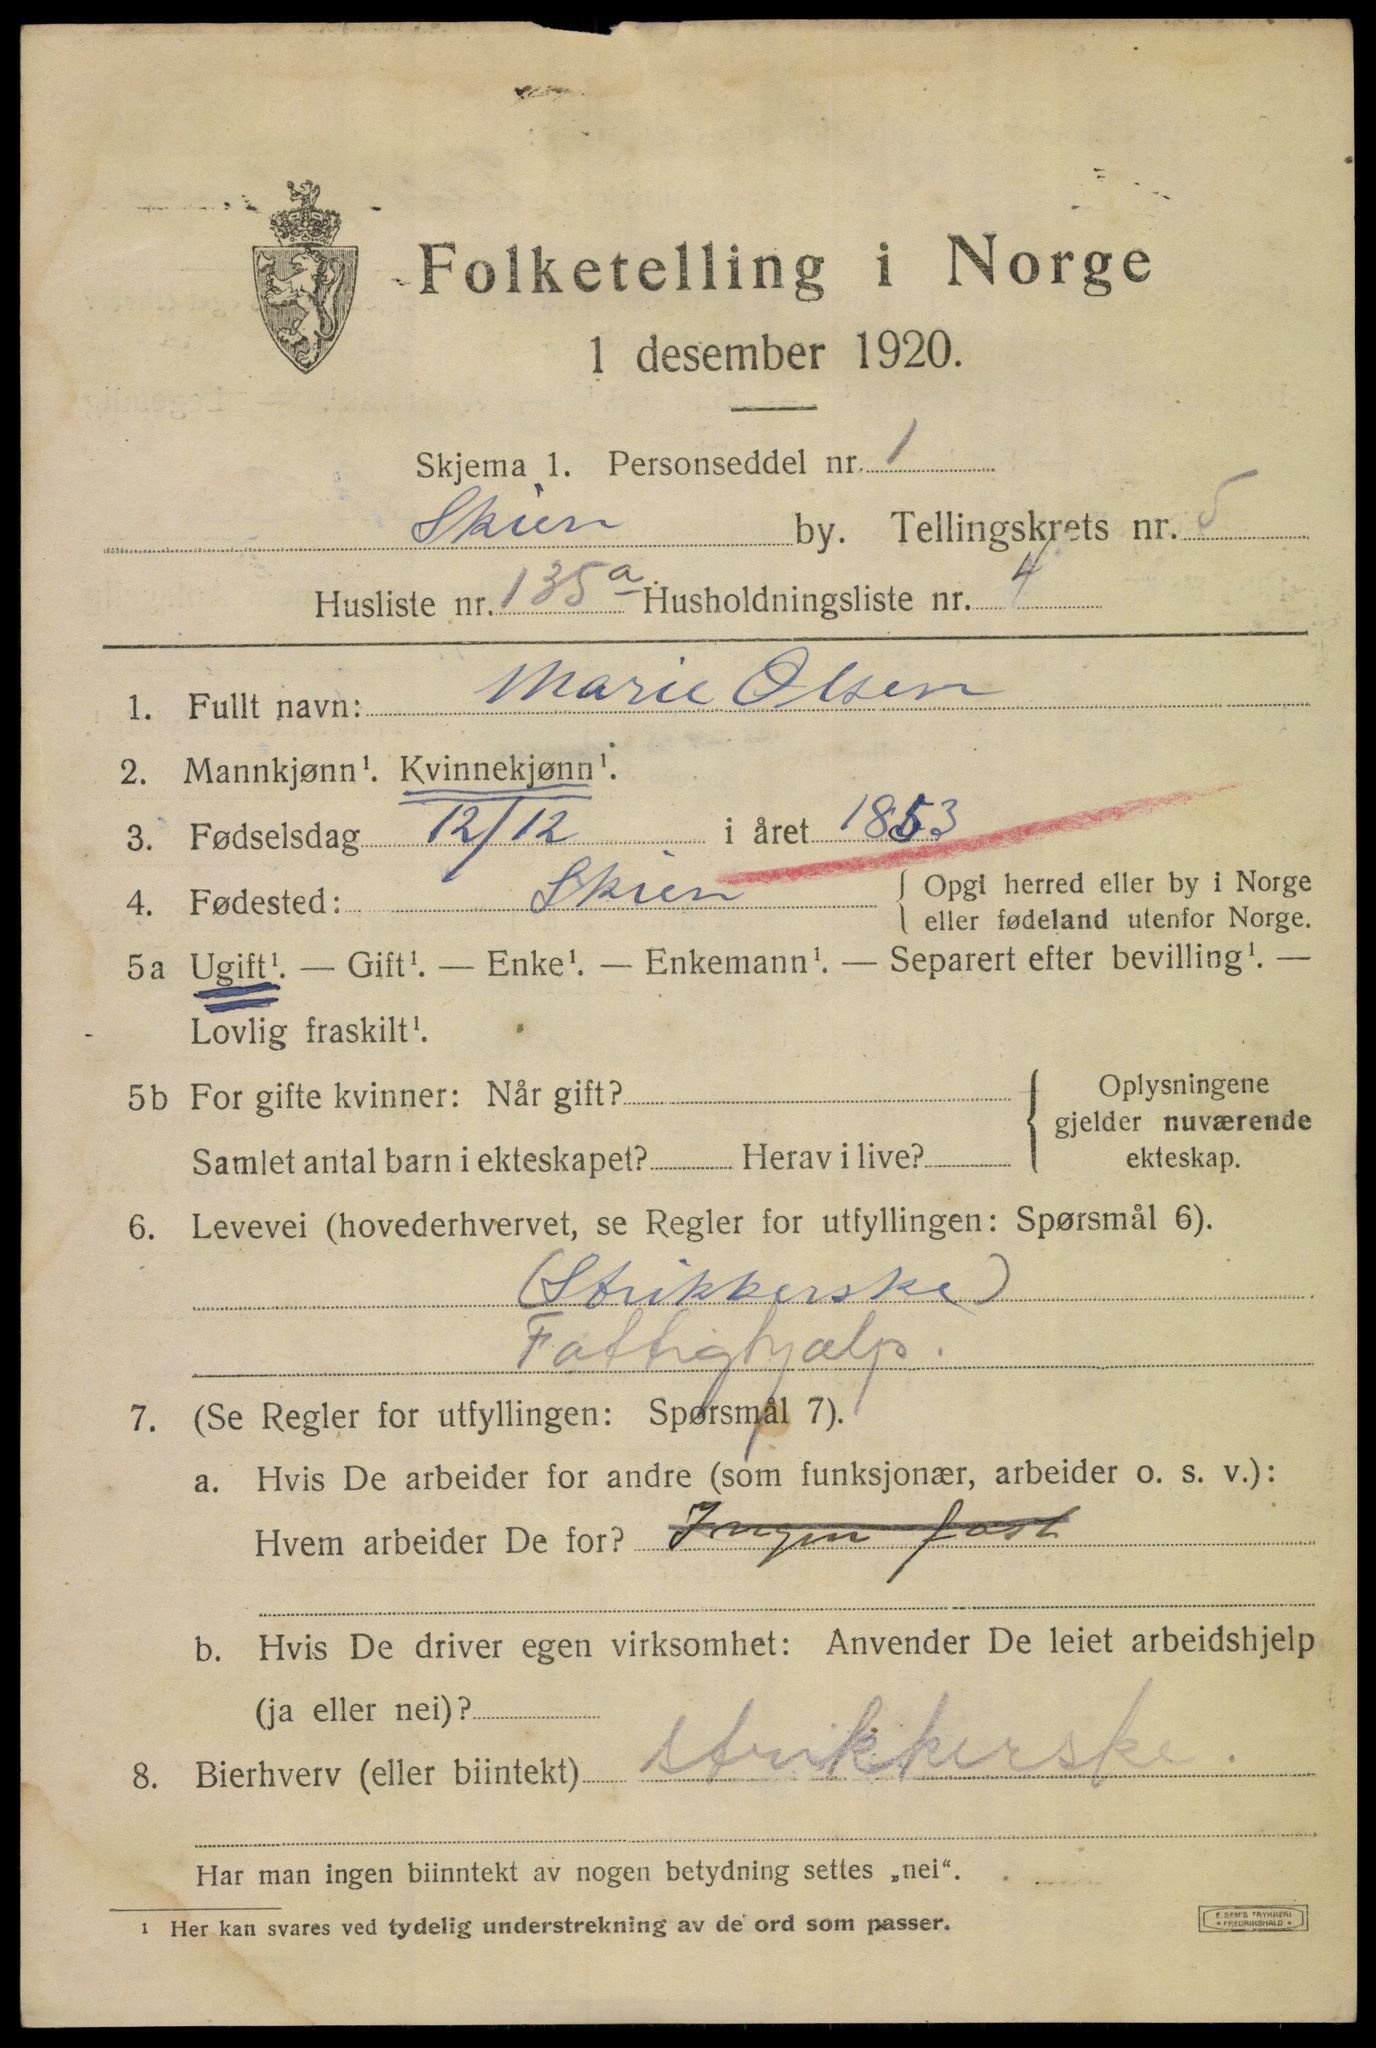 Folketelling i Norge
1 desember 1920.
Skjema 1. Personseddel nr. 1
Skien by. Tellingskrets nr. 5
Husliste nr. 135 a Husholdningsliste nr. 4
1. Fullt navn: Marie Olsen
2. Mannkjønn¹. Kvinnekjønn¹.
3. Fødselsdag 12/12 i året 1853
4. Fødested: Skien { Opgi herred eller by i Norge
eller fødeland utenfor Norge.
5a Ugift¹. — Gift¹. — Enke¹. — Enkemann¹. — Separert efter bevilling¹. —
Lovlig fraskilt¹.
5b For gifte kvinner: Når gift? { Oplysningene
gjelder nuværende
Samlet antal barn i ekteskapet? Herav i live? ekteskap.
6. Levevei (hovederhvervet, se Regler for utfyllingen: Spørsmål 6).
(Strikkerske)
Fattighjælp.
7. (Se Regler for utfyllingen: Spørsmål 7).
a. Hvis De arbeider for andre (som funksjonær, arbeider o. s. v.):
Hvem arbeider De for? Ingen fast
b. Hvis De driver egen virksomhet: Anvender De leiet arbeidshjelp
(ja eller nei)?
8. Bierhverv (eller biintekt) strikkerske.
Har man ingen biinntekt av nogen betydning settes „nei“.
¹ Her kan svares ved tydelig understrekning av de ord som passer.
E. SEM'S TRYKKERI
FREDRIKSHALD